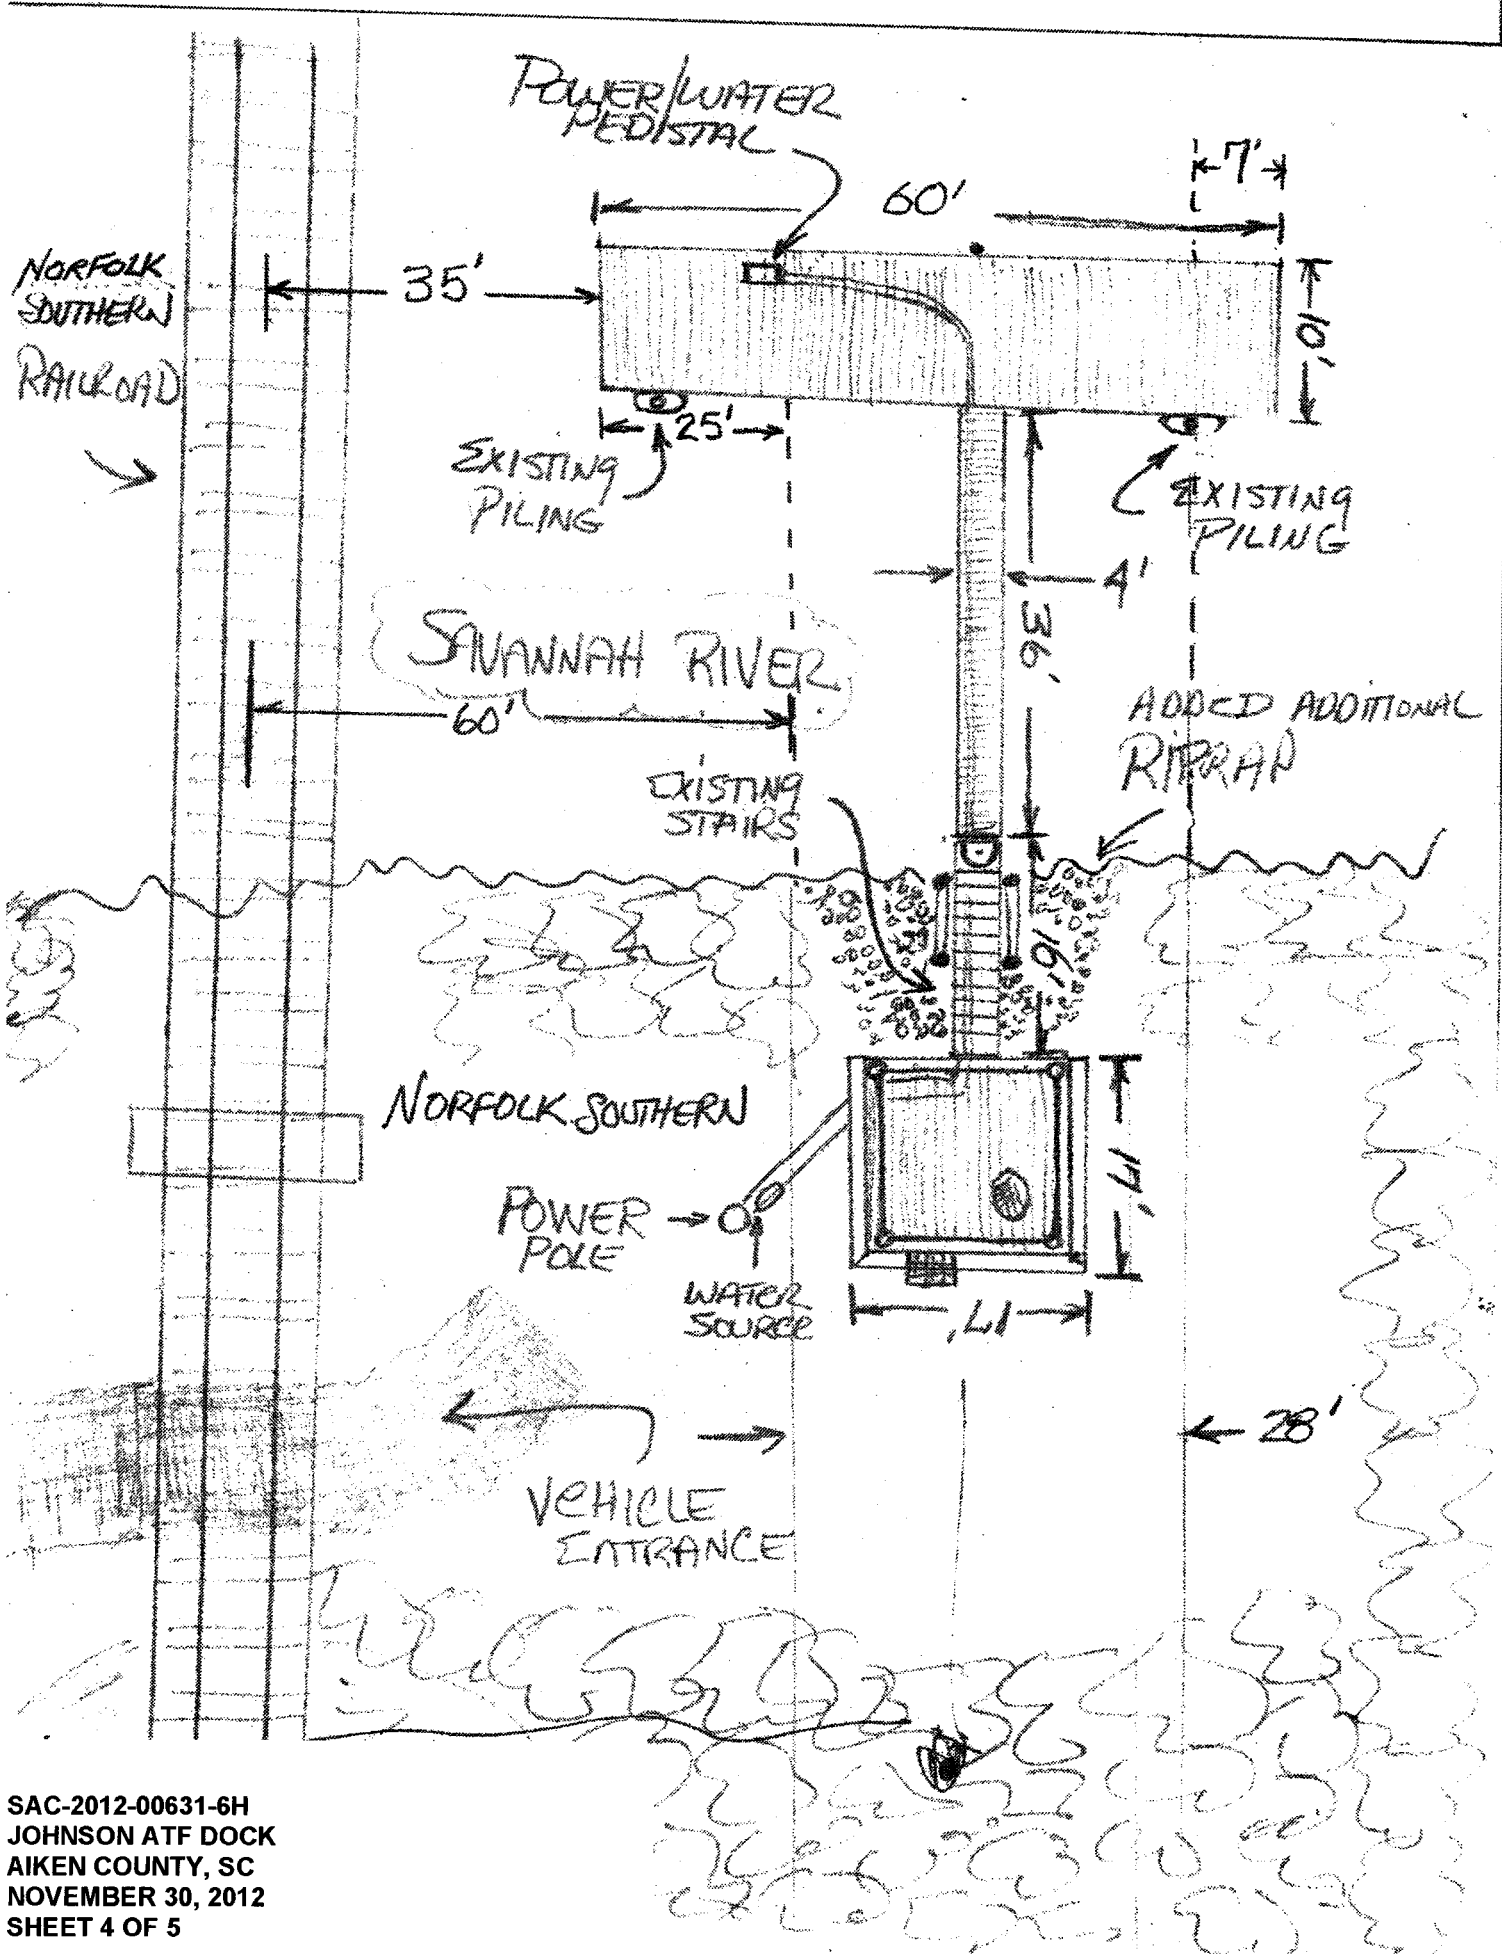 POWER/WATER
PEDISTAL
7'
60'
NORFOLK
SOUTHERN
RAILROAD
35'
10'
25'
EXISTING
PILING
EXISTING
PILING
4'
36'
SAVANNAH RIVER
60'
ADDED ADDITIONAL
RIPRAP
EXISTING
STAIRS
16'
NORFOLK SOUTHERN
17'
POWER
POLE
WATER
SOURCE
17'
28'
VEHICLE
ENTRANCE
SAC-2012-00631-6H
JOHNSON ATF DOCK
AIKEN COUNTY, SC
NOVEMBER 30, 2012
SHEET 4 OF 5